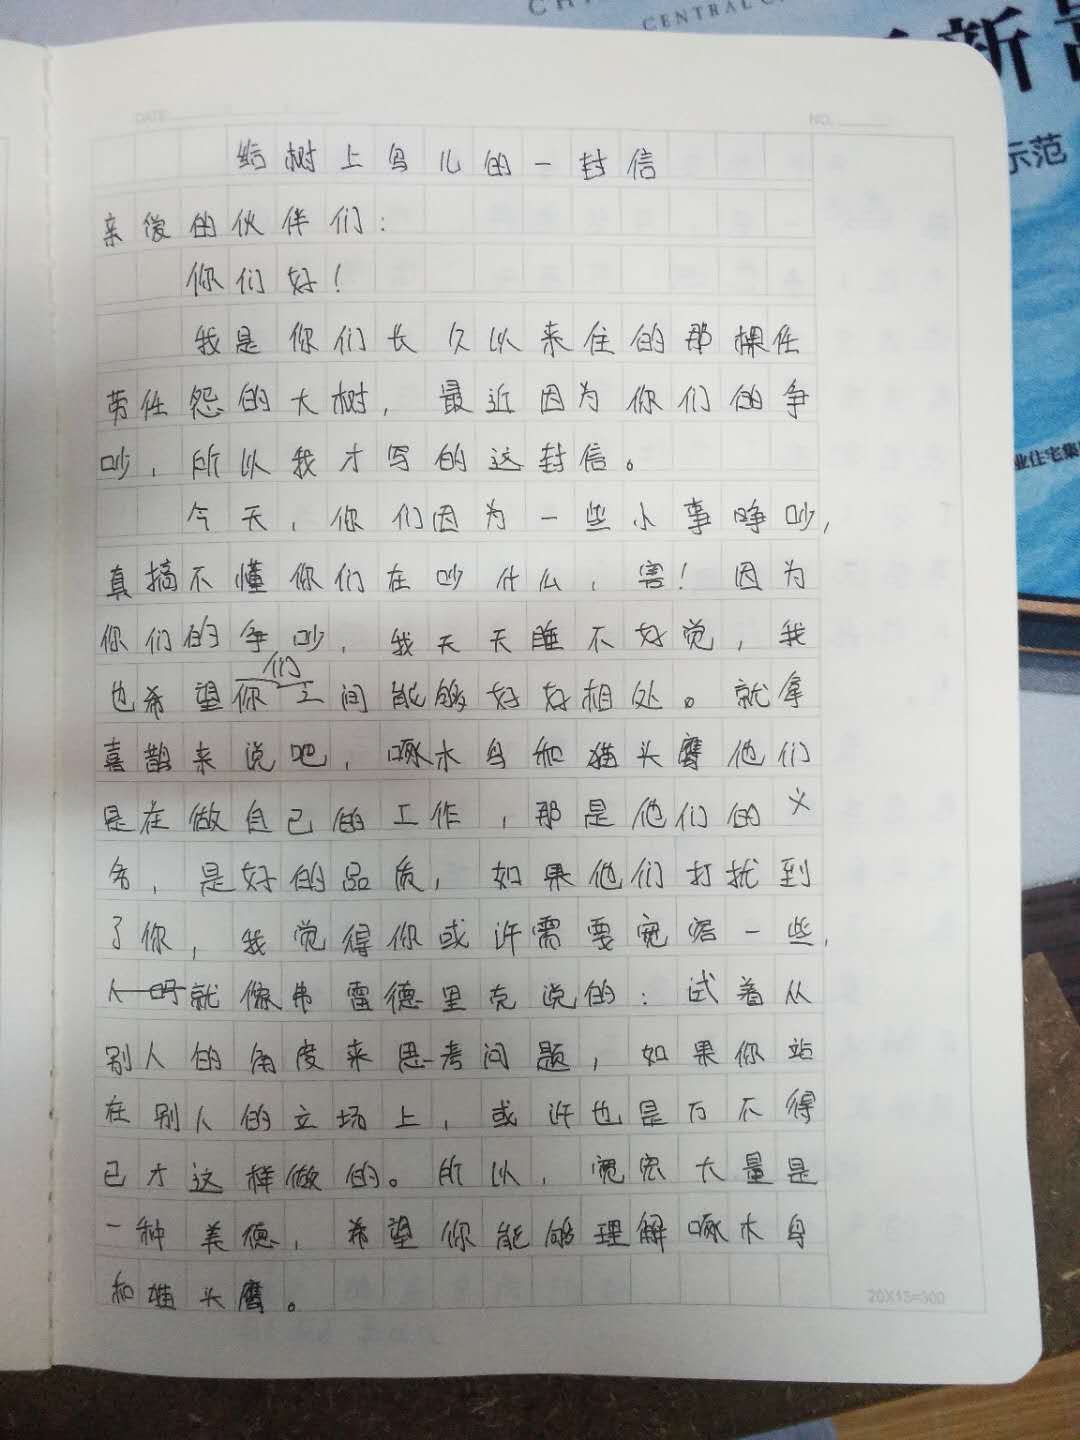 CENTRAL C
新
示范
业住宅集
DATE
NO.
给树上鸟儿的一封信
亲爱的伙伴们：
你们好！
我是你们长久以来住的那棵任
劳任怨的大树，最近因为你们的争
吵，所以我才写的这封信。
今天，你们因为一些小事睁吵，
真搞不懂你们在吵什么，害！因为
你们的争吵，我天天睡不好觉，我
也希望你们之间能够好好相处。就拿
喜鹊来说吧，啄木鸟和猫头鹰他们
是在做自己的工作，那是他们的义
务，是好的品质，如果他们打扰到
了你，我觉得你或许需要宽容一些，
就像弗雷德里克说的：试着从
别人的角度来思考问题，如果你站
在别人的立场上，或许也是万不得
已才这样做的。所以，宽宏大量是
一种美德，希望你能够理解啄木鸟
和猫头鹰。
20X15=300